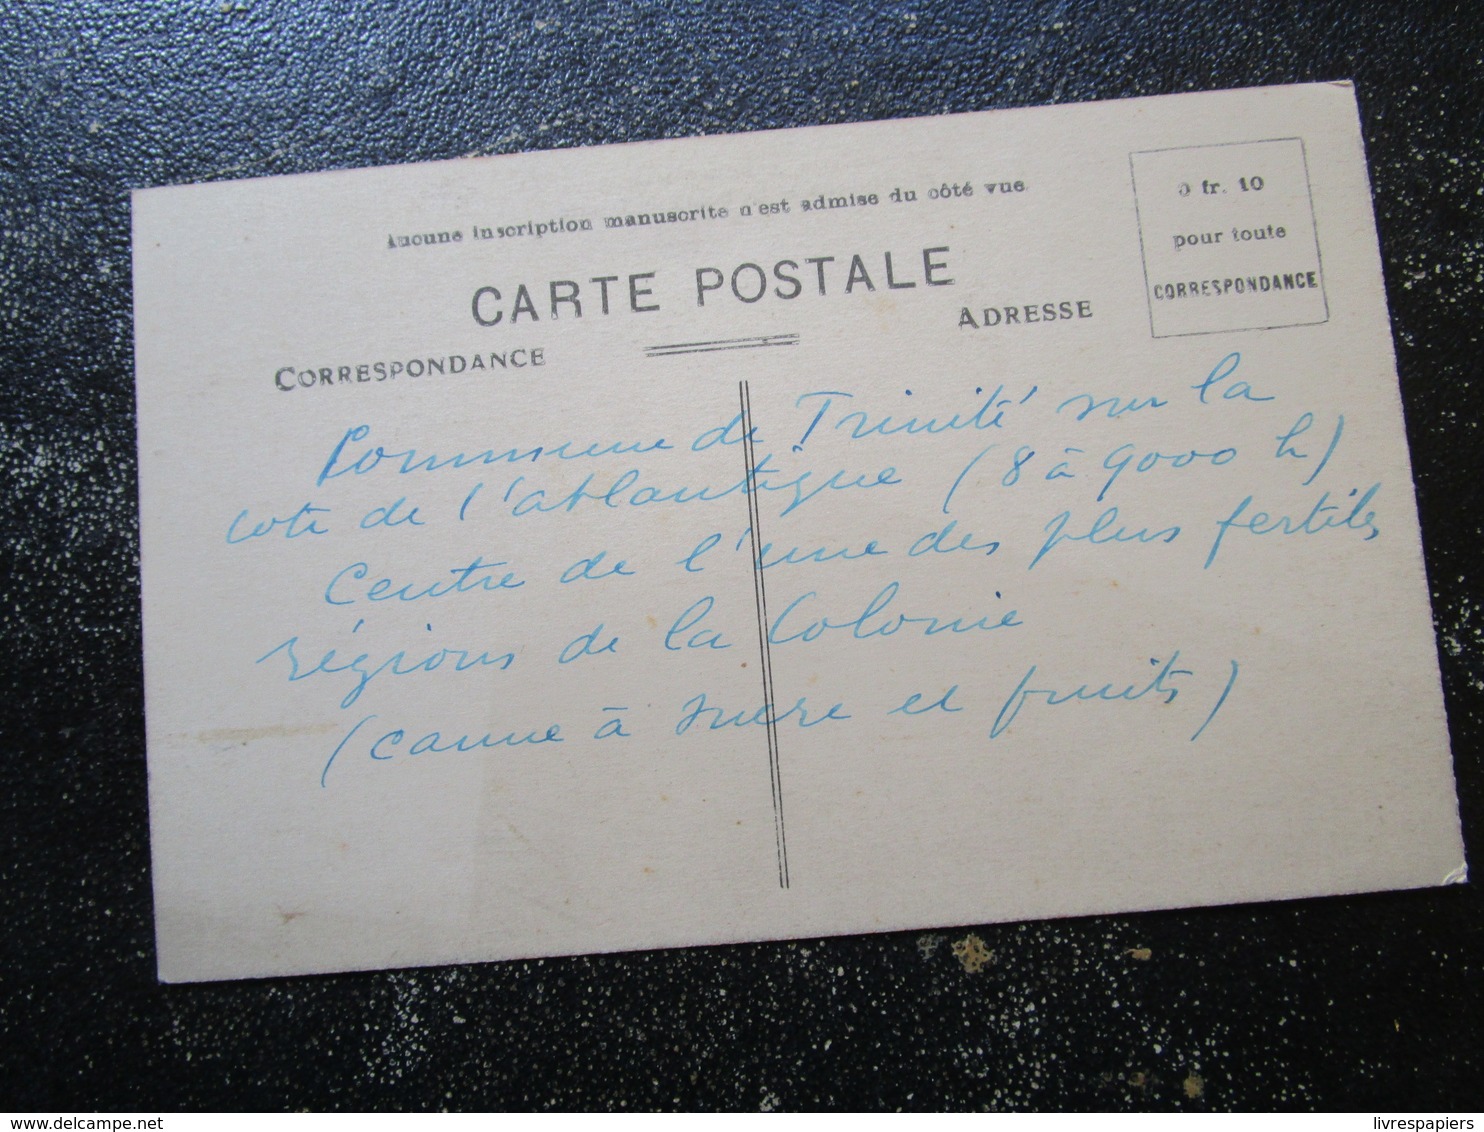 Aucune inscription manuscrite n'est admise du côté vue
CARTE POSTALE
CORRESPONDANCE
ADRESSE
0 fr. 10
pour toute
CORRESPONDANCE
Commune de Trinité sur la
cote de l'atlantique (8 à 9000 h)
Centre de l'une des plus fertiles
régions de la Colonie
(canne à sucre et fruits)
www.delcampe.net
livrespapiers